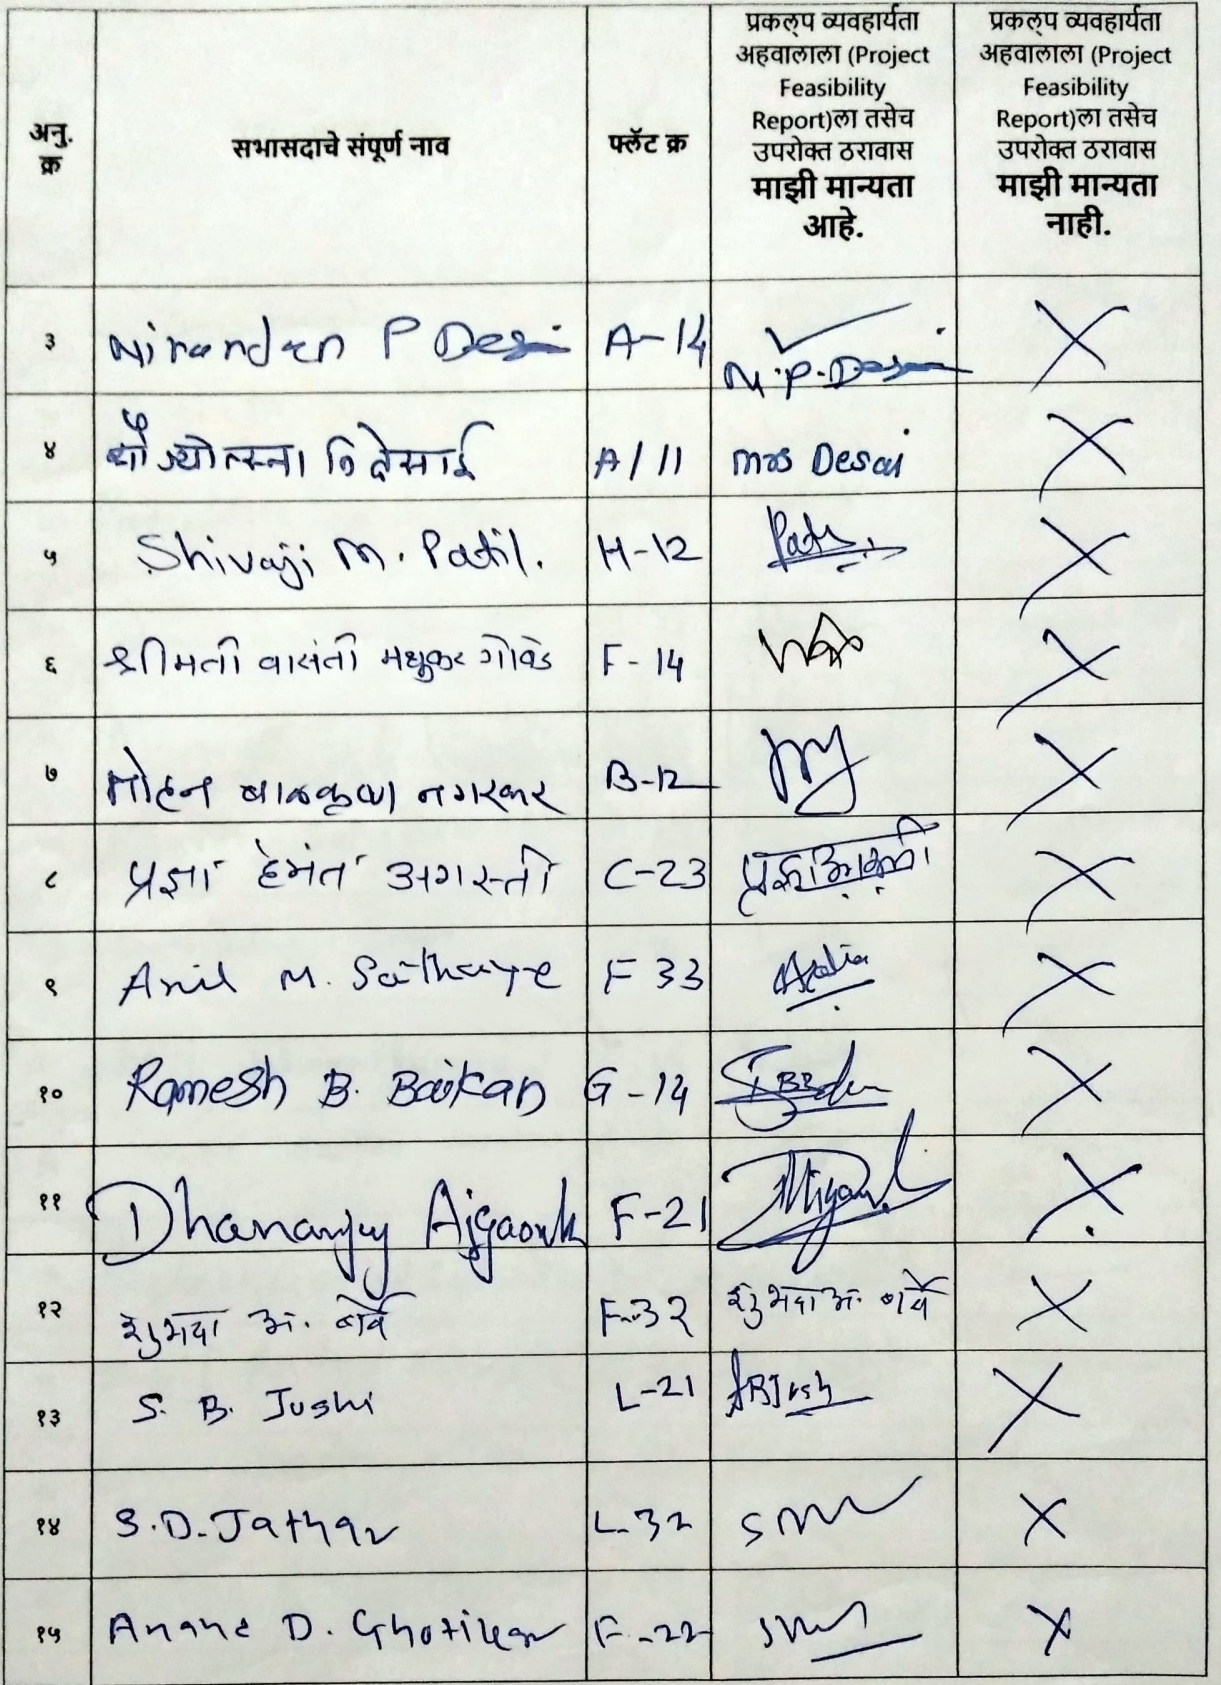 अनु. क्र
सभासदाचे संपूर्ण नाव
फ्लॅट क्र
प्रकल्प व्यवहार्यता
अहवालाला (Project
Feasibility
Report)ला तसेच
उपरोक्त ठरावास
माझी मान्यता
आहे.
प्रकल्प व्यवहार्यता
अहवालाला (Project
Feasibility
Report)ला तसेच
उपरोक्त ठरावास
माझी मान्यता
नाही.
३ P Desai A-14 N.P.Desai
४ सौ ज्योत्स्ना नि देसाई A/11 Mrs Desai
५ Shivaji M. Patil. H-12
६ श्रीमती वासंती मधुकर F-14
७ मोहन बाळकृष्ण नगरकर B-12
८ प्रज्ञा हेमंत अगस्ती C-23
९ Anil M. Sathaye F 33
१० Ramesh B. G-14
११ F-21
१२ शुभदा अ. बर्वे F-32 शुभदा अ. बर्वे
१३ S. B. Joshi L-21 SBJoshi
१४ S.D.Jathar L-32
१५ D. Ghotikar F-22